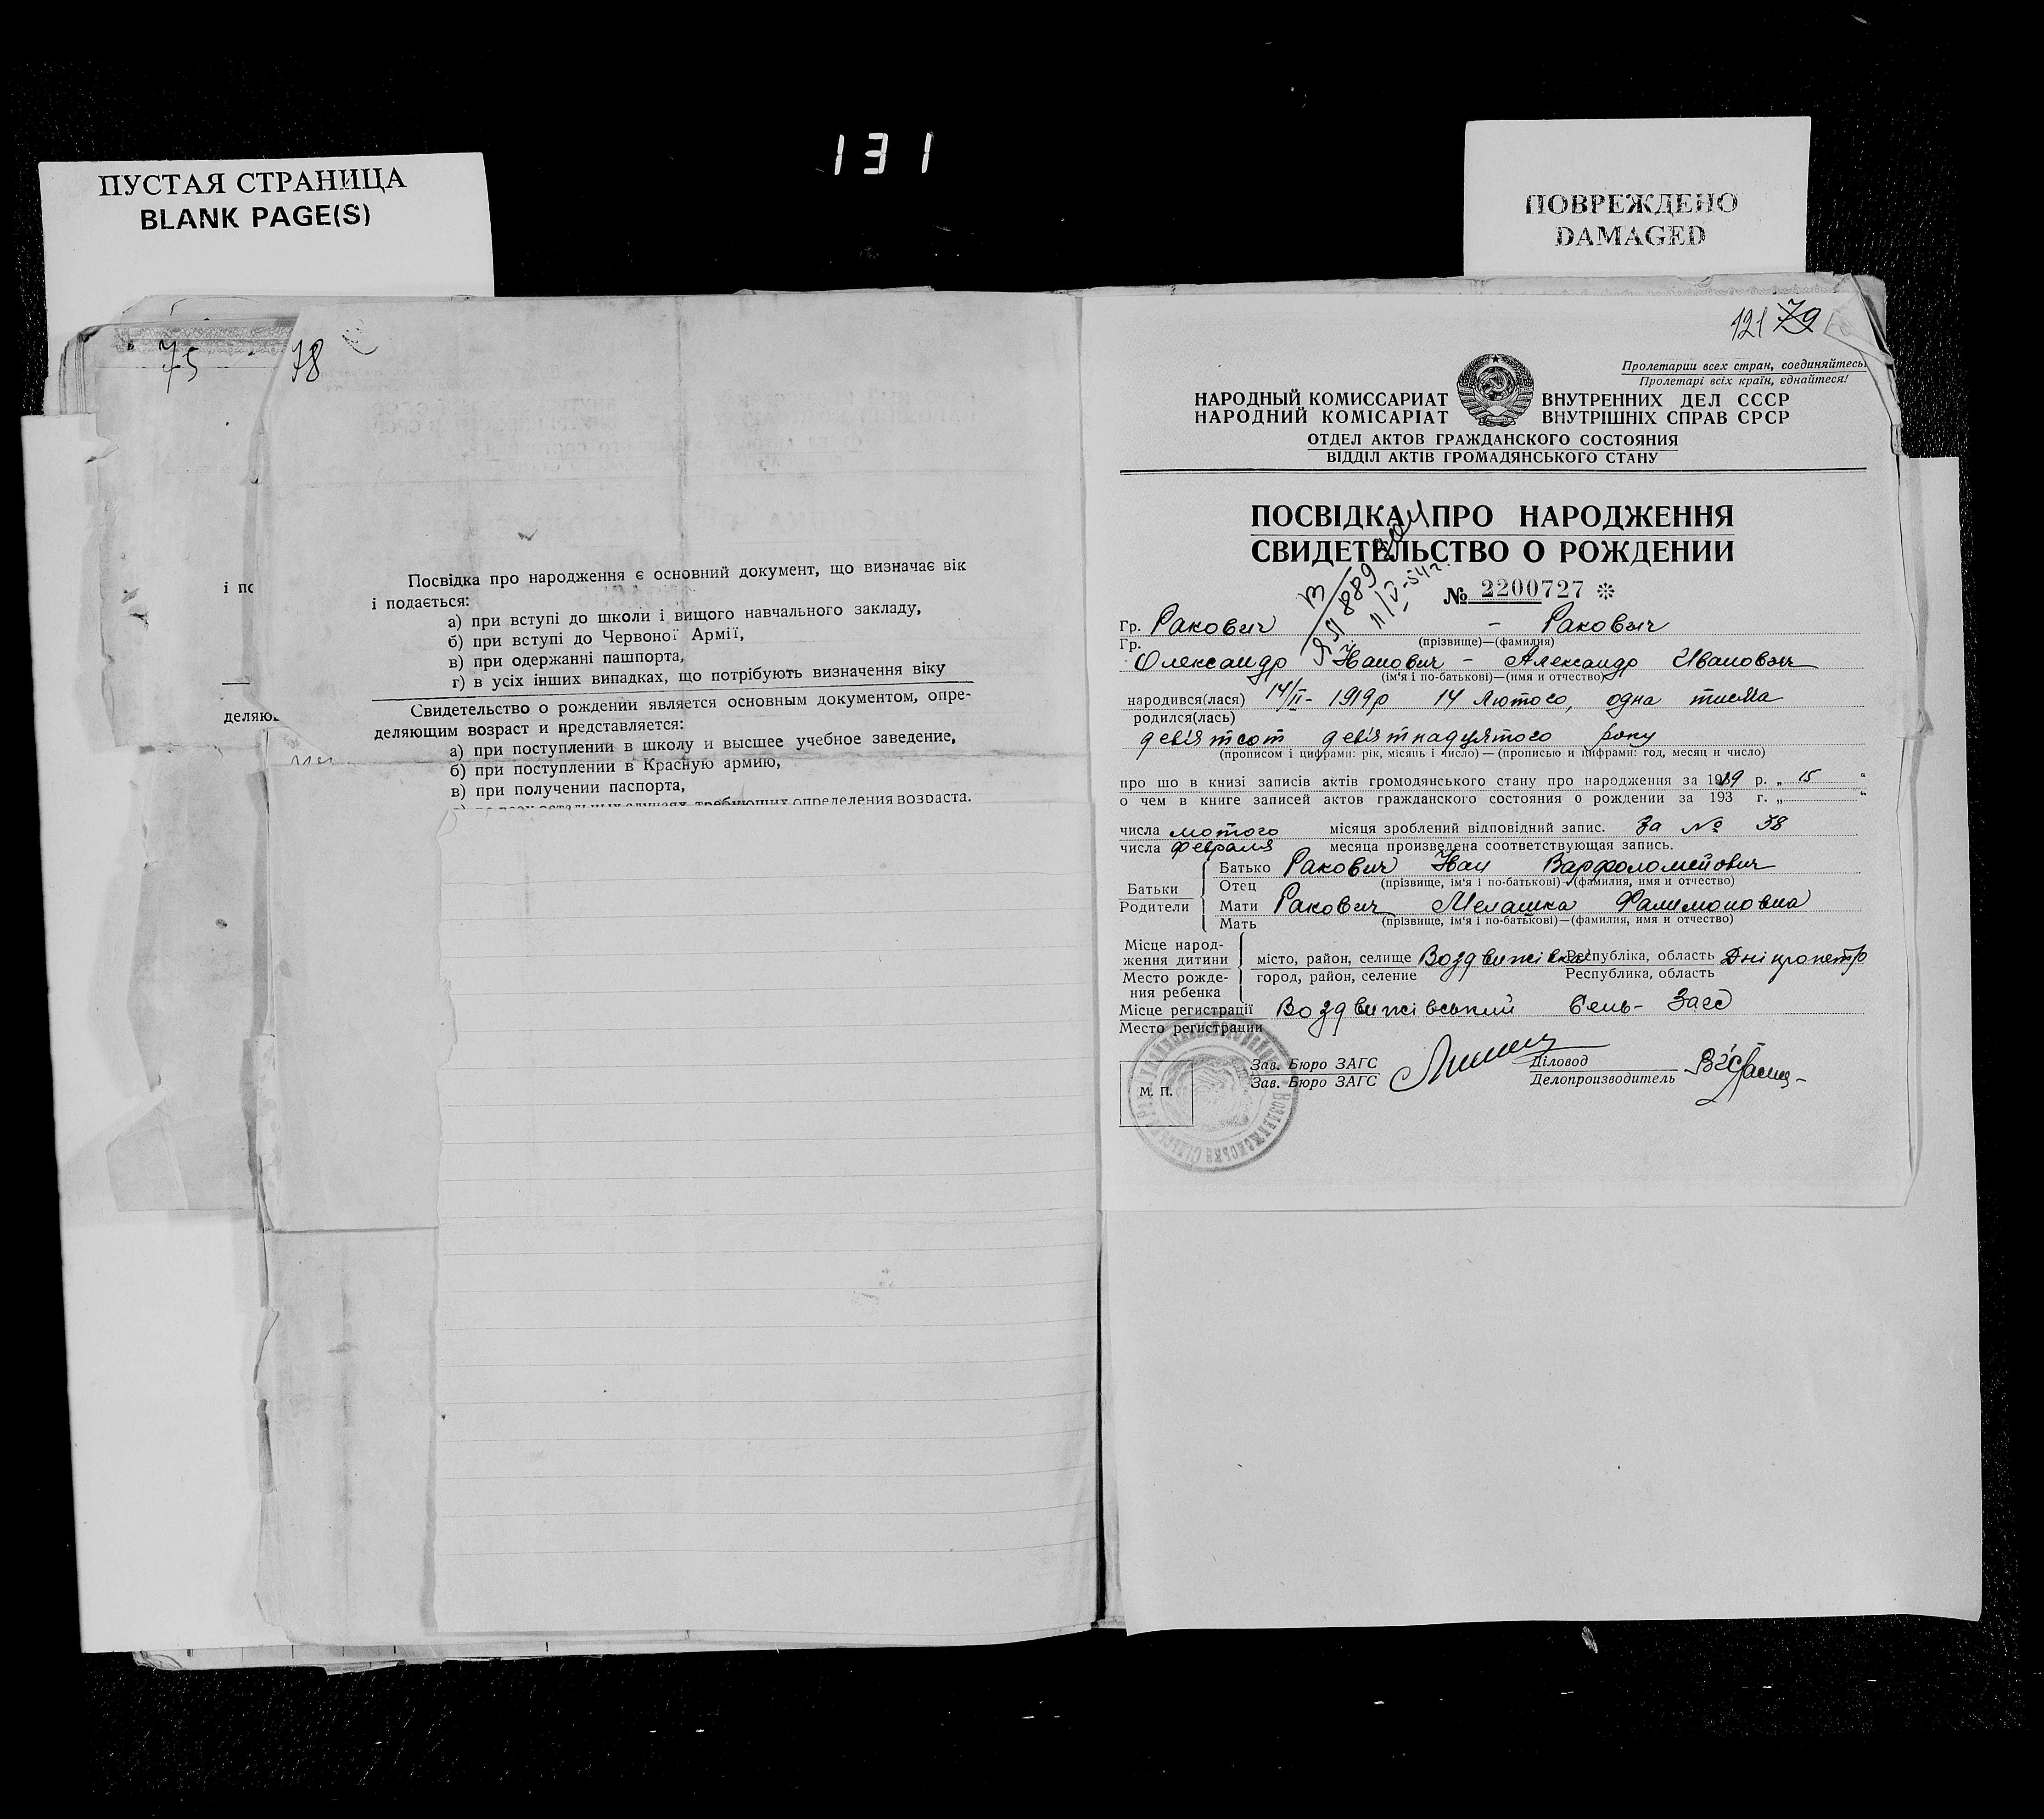 131
ПУСТАЯ СТРАНИЦА
BLANK PAGE(S)
ПОВРЕЖДЕНО
DAMAGED
75
78
і по
деляю
Посвідка про народження є основний документ, що визначає вік
і подається:
а) при вступі до школи і вищого навчального закладу,
б) при вступі до Червоної Армії,
в) при одержанні пашпорта,
г) в усіх інших випадках, що потрібують визначення віку
Свидетельство о рождении является основным документом, опре-
деляющим возраст и представляется:
а) при поступлении в школу и высшее учебное заведение,
б) при поступлении в Красную армию,
в) при получении паспорта,
г) во всех остальных случаях, требующих определения возраста.
121 79
Пролетарии всех стран, соединяйтесь!
Пролетарі всіх країн, єднайтеся!
НАРОДНЫЙ КОМИССАРИАТ ВНУТРЕННИХ ДЕЛ СССР
НАРОДНИЙ КОМІСАРІАТ ВНУТРІШНІХ СПРАВ СРСР
ОТДЕЛ АКТОВ ГРАЖДАНСКОГО СОСТОЯНИЯ
ВІДДІЛ АКТІВ ГРОМАДЯНСЬКОГО СТАНУ
ПОСВІДКА ПРО НАРОДЖЕННЯ
СВИДЕТЕЛЬСТВО О РОЖДЕНИИ
№ 2200727
889
11/V-54 г.
Гр. Ракович - Ракович
Гр. (прізвище)—(фамилия)
Олександр Іванович - Александр Иванович
(ім'я і по-батькові)—(имя и отчество)
народився(лася) 14/II- 1919р 14 Лютого, одна тисяча
родился(лась)
девятсот девятнадцятого року
(прописом і цифрами: рік, місяць і число)—(прописью и цифрами: год, месяц и число)
про що в книзі записів актів громодянського стану про народження за 1919 р. „ 15 “
о чем в книге записей актов гражданского состояния о рождении за 193 г. „ “
числа лютого місяця зроблений відповідний запис. За № 38
числа февраля месяца произведена соответствующая запись.
Батьки
Родители
Батько Ракович Іван Варфоломейович
Отец (прізвище, ім'я і по-батькові)—(фамилия, имя и отчество)
Мати Ракович Мелашка Фалимоновна
Мать (прізвище, ім'я і по-батькові)—(фамилия, имя и отчество)
Місце народ-
ження дитини
Место рожде-
ния ребенка
місто, район, селище Воздвижівка Республіка, область Дніпропетр
город, район, селение Республика, область
Місце регистрації Воздвижівський Сель- Загс
Место регистрации
М. П.
Зав. Бюро ЗАГС
Зав. Бюро ЗАГС
Діловод
Делопроизводитель